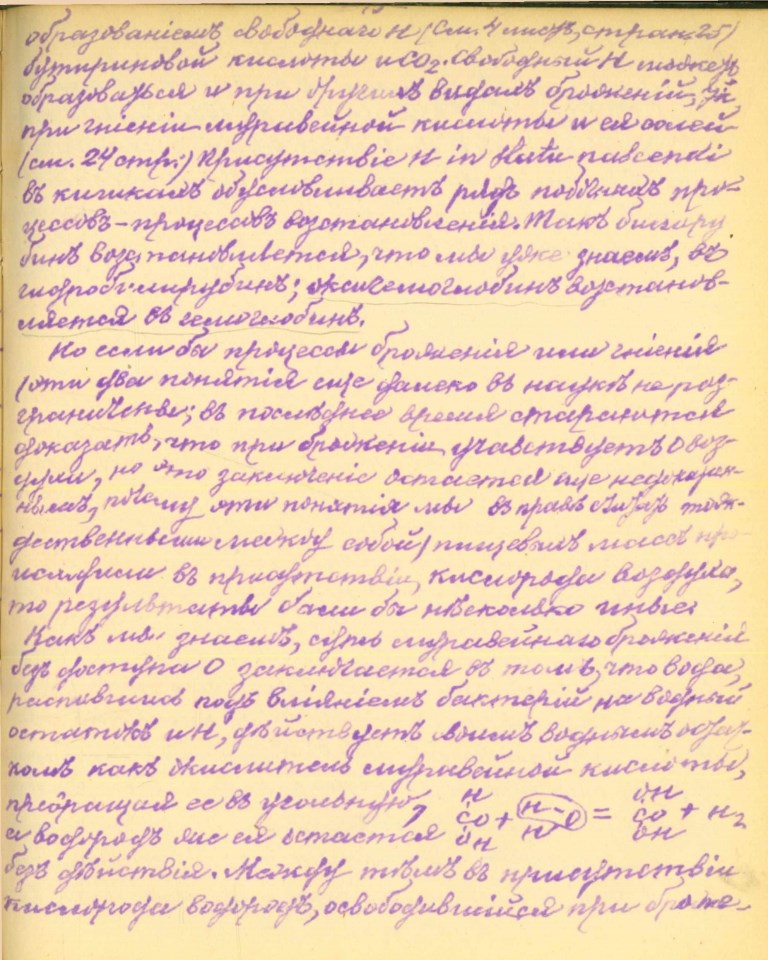 образованіемъ свободнаго H (см. 4 листъ, стран. 25)
бутириновой кислоты и CO2. Свободный H можетъ
образоваться и при другихъ видахъ броженій,
при гніеніи муравейной кислоты и ея солей
(см. 24 стр.) Присутствіе H in statu nascendi
въ кишкахъ обусловливаетъ рядъ побочныхъ про-
цессовъ – процессовъ возстановленія. Такъ билиру
бинъ возстановляется, что мы уже знаемъ, въ
гидробилирубинъ; оксигемоглобинъ возстанов-
ляется въ гемоглобинъ.
Но если бы процессы броженія или гніенія
(эти два понятія еще далеко въ наукѣ не роз-
граничены; въ послѣднее время стараются
доказать, что при броженіи учавствуетъ O воз-
духа, но это заключеніе остается еще недоказан-
нымъ, почему эти понятія мы въ правѣ считать тож-
дественными между собой) пищевыхъ массъ про-
исходили въ присутствіи кислорода воздуха,
то результаты были бы нѣсколько иные.
Какъ мы знаемъ, суть муравейнаго броженія
безъ доступа O заключается въ томъ, что вода,
распавшись подъ вліяніемъ бактерій на водный
остатокъ и H, дѣйствуетъ своимъ воднымъ остат-
комъ какъ окислитель муравейной кислоты,
превращая ее въ угольную, H CO OH + H–O H = OH CO OH + H2
а водородъ же ея остается
безъ дѣйствія. Между тѣмъ въ присутствіи
кислорода водородъ, освободившійся при броже-